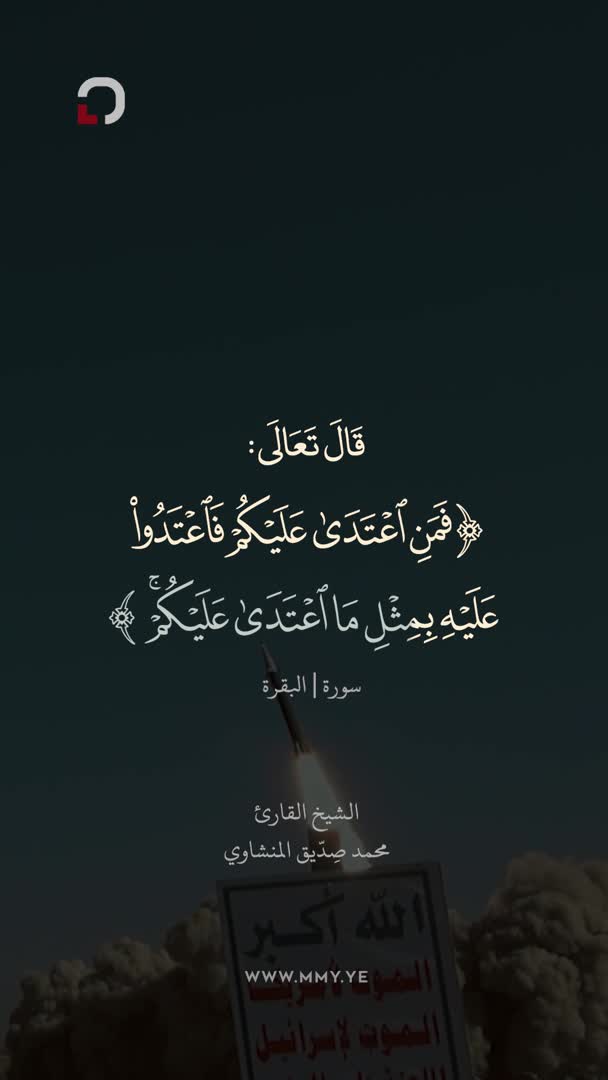 قَالَ تَعَالَى:
﴿فَمَنِ ٱعْتَدَىٰ عَلَيْكُمْ فَٱعْتَدُوا۟
عَلَيْهِ بِمِثْلِ مَا ٱعْتَدَىٰ عَلَيْكُمْ ۚ﴾
سورة | البقرة
الشيخ القارئ
محمد صِدّيق المنشاوي
الله أكبر
WWW.MMY.YE
الموت لأمريكا
الموت لإسرائيل